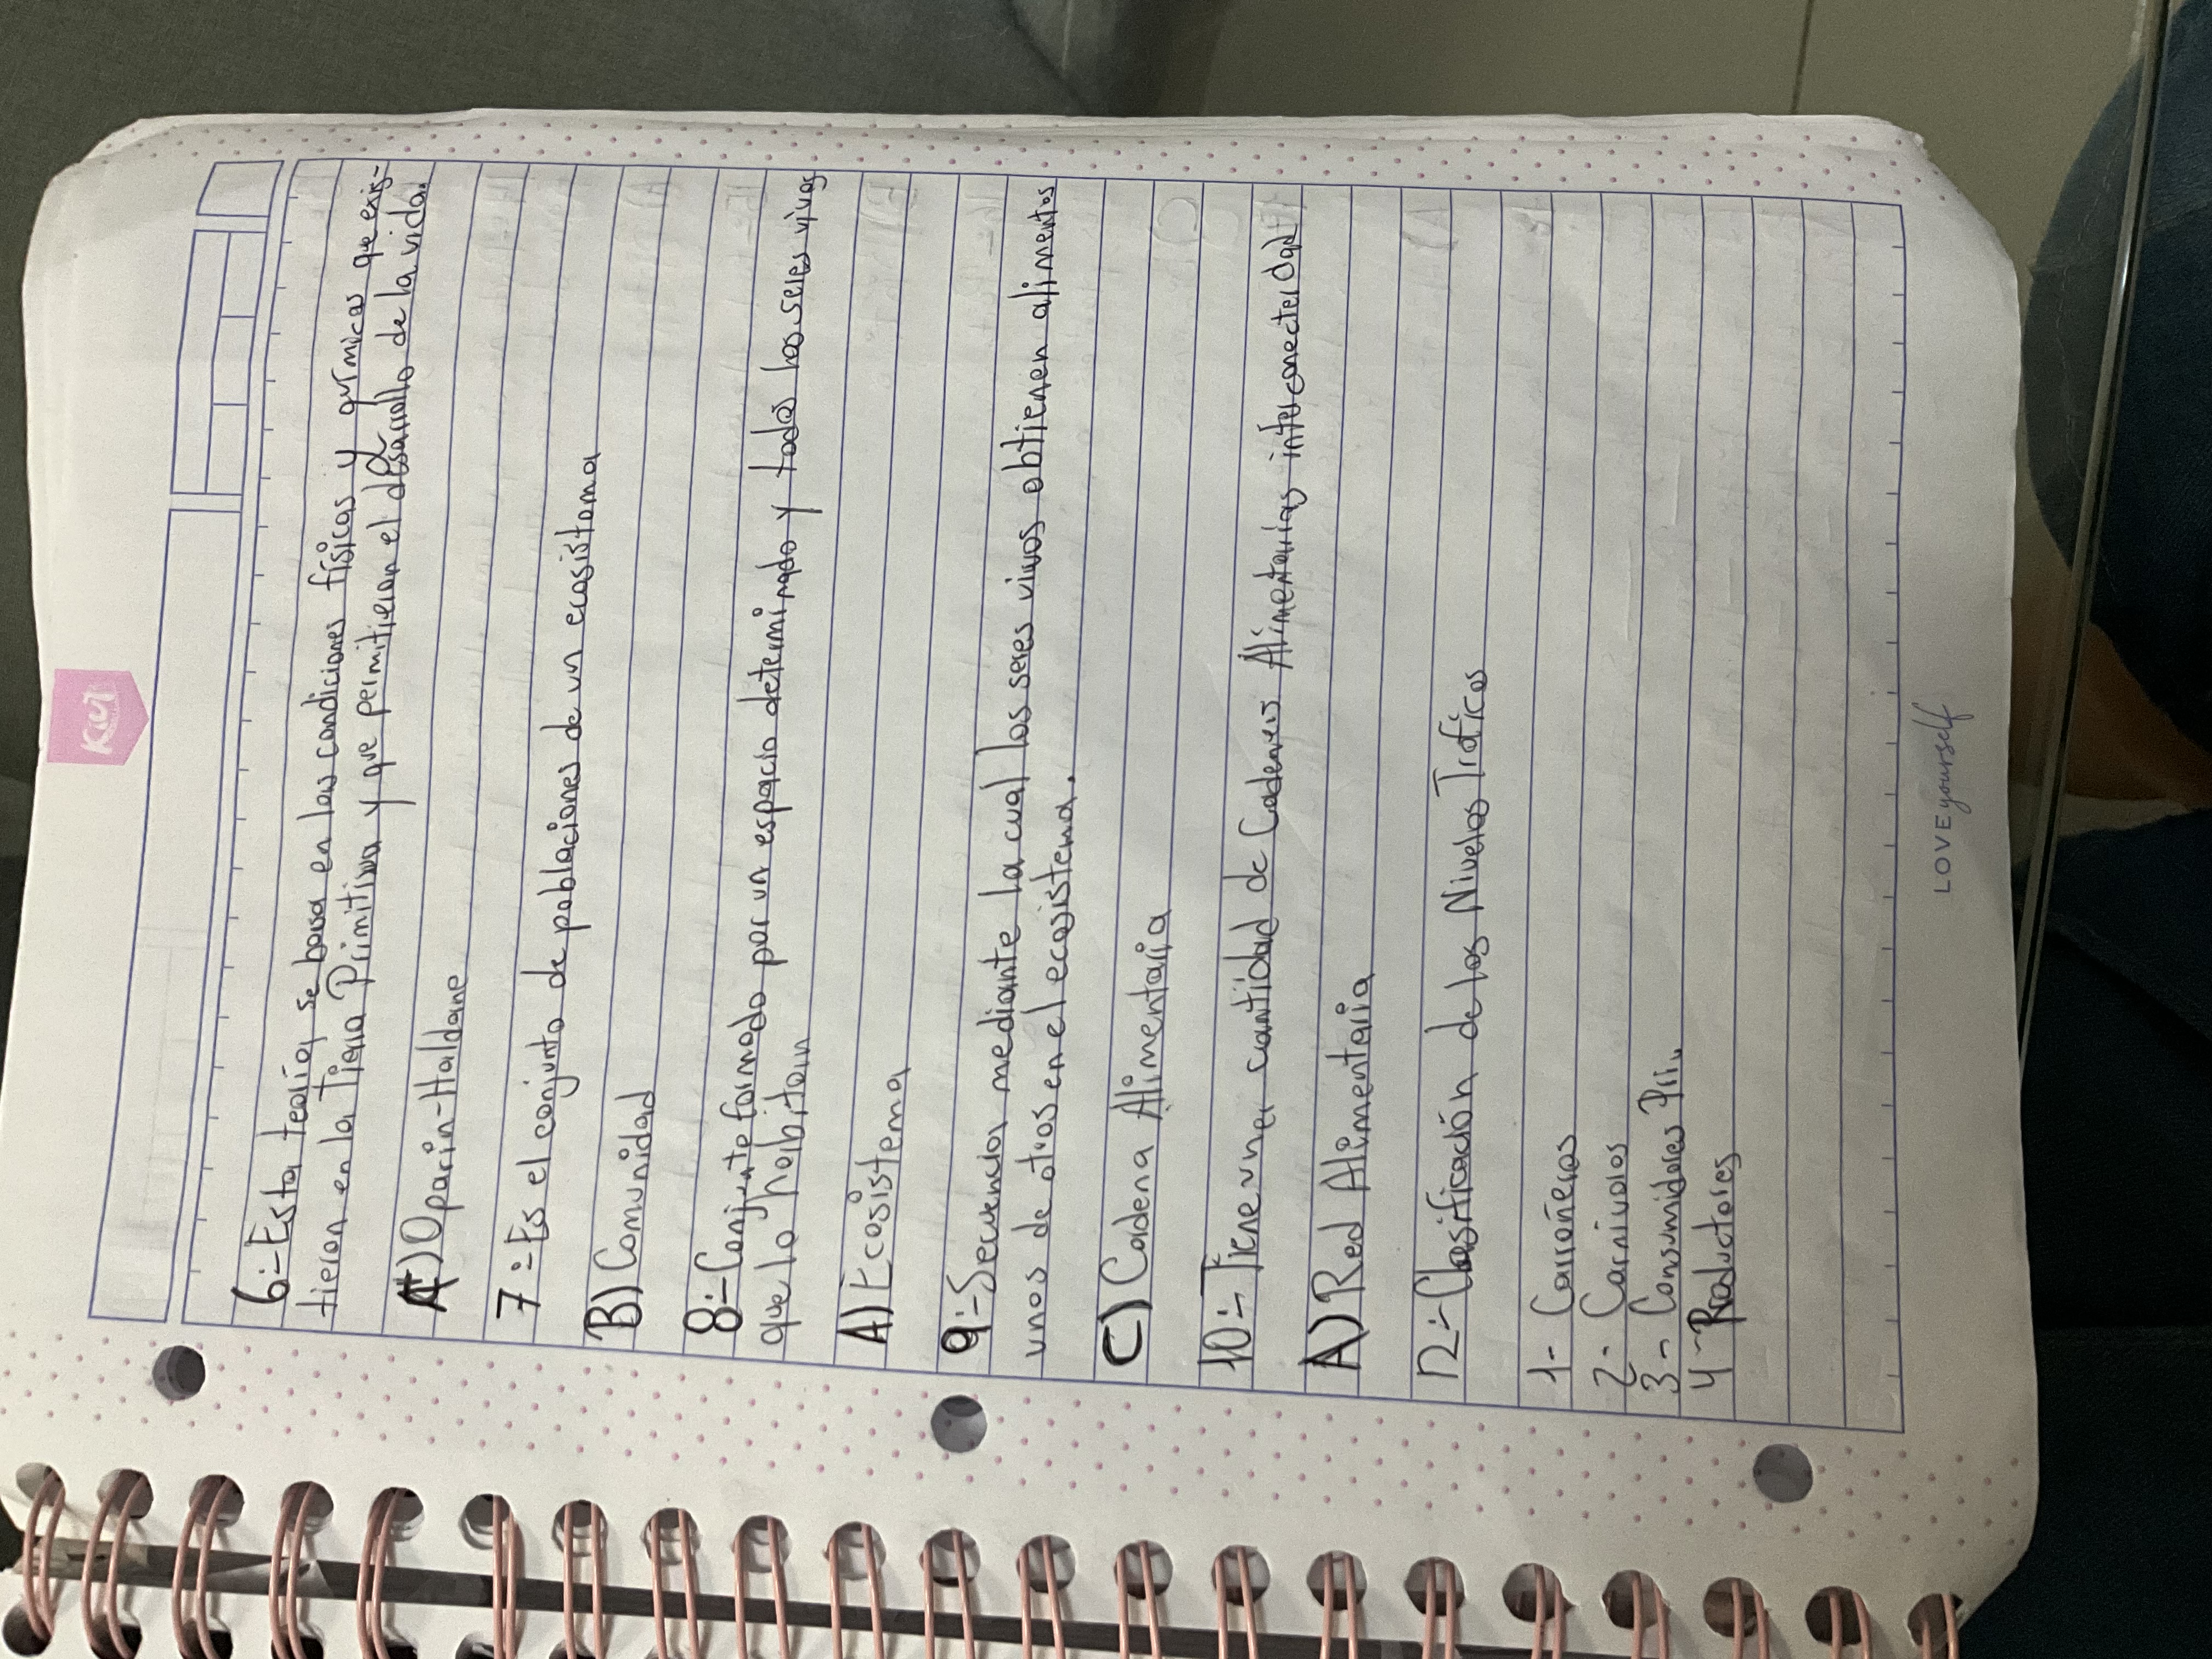 Kiut
6:- Esta teoría se basa en las condiciones físicas y químicas que exis-
tieron en la Tierra Primitiva y que permitieron el desarrollo de la vida.
A) Oparin-Haldane
7:- Es el conjunto de poblaciones de un ecosistama
B) Comunidad
8:- Conjunto formado por un espacio determinado y todos los seres vivos
que lo habitan
A) Ecosistema
9:- Secuencia mediante la cual los seres vivos obtienen alimentos
unos de otros en el ecosistema.
C) Cadena Alimentaria
10:- Tiene una cantidad de Cadenas Alimentarias interconectadas
A) Red Alimentaria
12:- Clasificación de los Niveles Tróficos
1- Carroñeros
2- Carnivoros
3- Consumidores Pri.
4- Productores
LOVE yourself